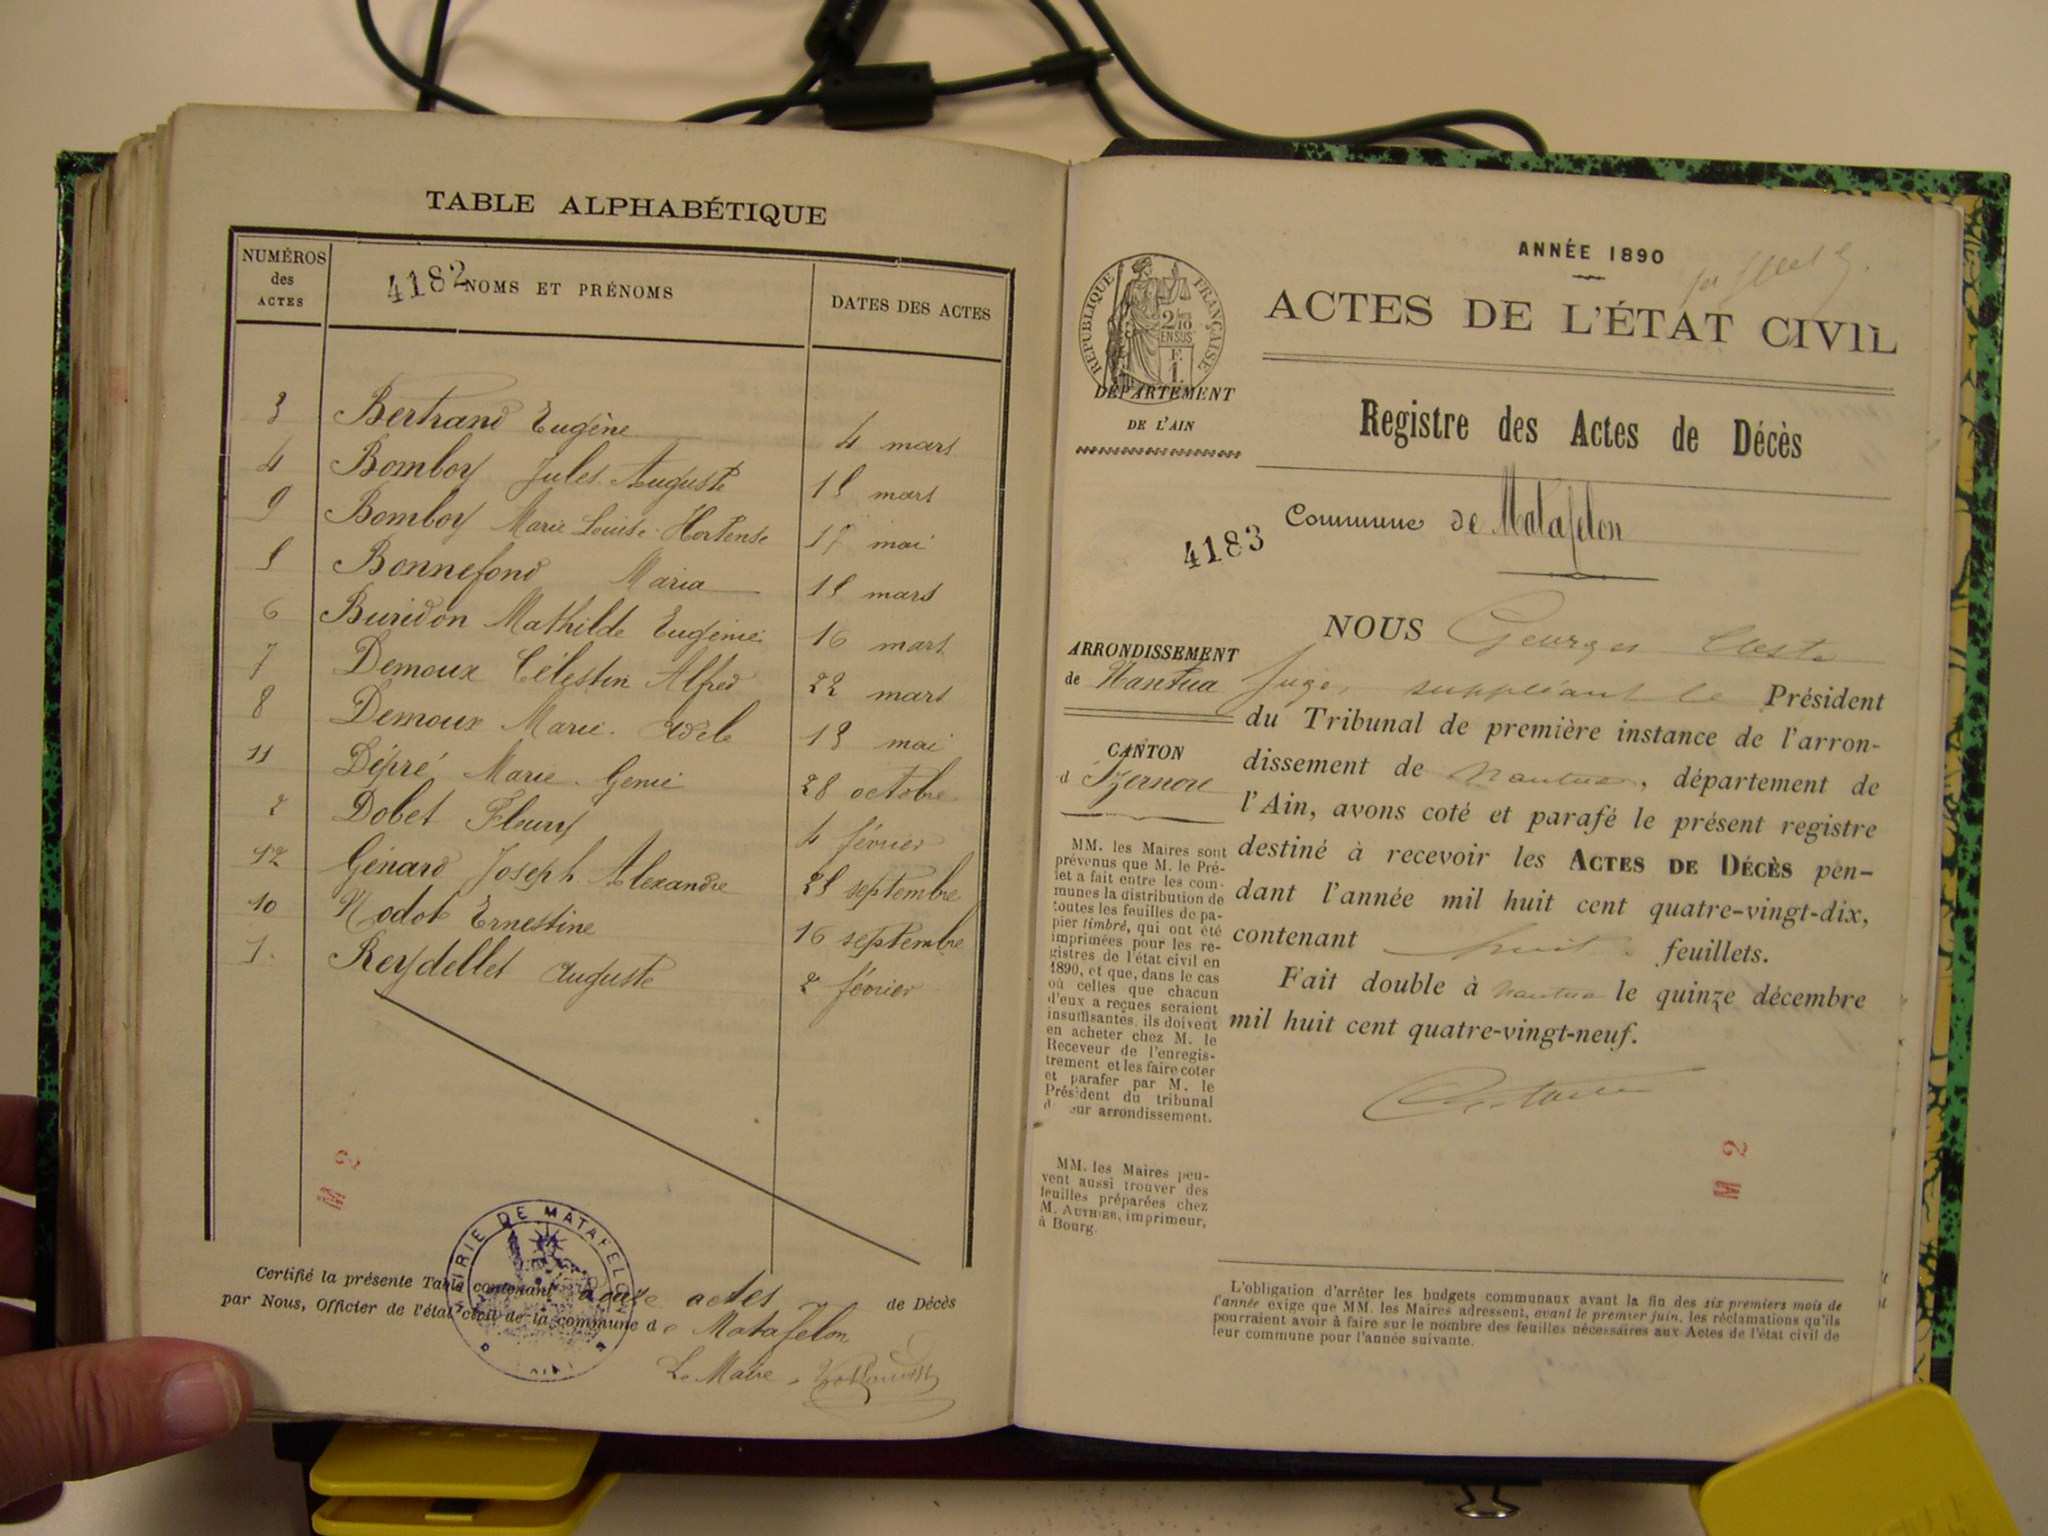 TABLE ALPHABÉTIQUE
NUMÉROS des ACTES
4182 NOMS ET PRÉNOMS
DATES DES ACTES
3 Bertrand Eugène 4 mars
4 Bomboy Jules Auguste 15 mars
9 Bomboy Marie Louise Hortense 17 mai
5 Bonnefond Maria 15 mars
6 Buridon Mathilde Eugénie 16 mars
7 Demoux Célestin Alfred 22 mars
8 Demoux Marie Adèle 13 mai
11 Dépré Marie Génie 28 octobre
2 Dobet Fleury 4 février
12 Génard Joseph Alexandre 25 septembre
10 Nodot Ernestine 16 septembre
1 Reydellet Auguste 2 février
MAIRIE DE MATAFELON
Certifié la présente Table contenant douze actes de Décès
par Nous, Officier de l'état civil de la commune de Matafelon
Le Maire
ANNÉE 1890
RÉPUBLIQUE FRANÇAISE
2/10
EN SUS
F.
1.
ACTES DE L'ÉTAT CIVIL
DÉPARTEMENT
DE L'AIN
Registre des Actes de Décès
Commune de Matafelon
4183
ARRONDISSEMENT
de Nantua
CANTON
d'Izernore
MM. les Maires sont
prévenus que M. le Pré-
fet a fait entre les com-
munes la distribution de
toutes les feuilles de pa-
pier timbré, qui ont été
imprimées pour les re-
gistres de l'état civil en
1890, et que, dans le cas
où celles que chacun
d'eux a reçues seraient
insuffisantes, ils doivent
en acheter chez M. le
Receveur de l'enregis-
trement et les faire coter
et parafer par M. le
Président du tribunal
d eur arrondissement.
MM. les Maires peu-
vent aussi trouver des
feuilles préparées chez
M. AUTHIER, imprimeur,
à Bourg.
NOUS Georges
Juge, suppléant le Président
du Tribunal de première instance de l'arron-
dissement de Nantua, département de
l'Ain, avons coté et parafé le présent registre
destiné à recevoir les ACTES DE DÉCÈS pen-
dant l'année mil huit cent quatre-vingt-dix,
contenant huit feuillets.
Fait double à Nantua le quinze décembre
mil huit cent quatre-vingt-neuf.
L'obligation d'arrêter les budgets communaux avant la fin des six premiers mois de
l'année exige que MM. les Maires adressent, avant le premier juin, les réclamations qu'ils
pourraient avoir à faire sur le nombre des feuilles nécessaires aux Actes de l'état civil de
leur commune pour l'année suivante.